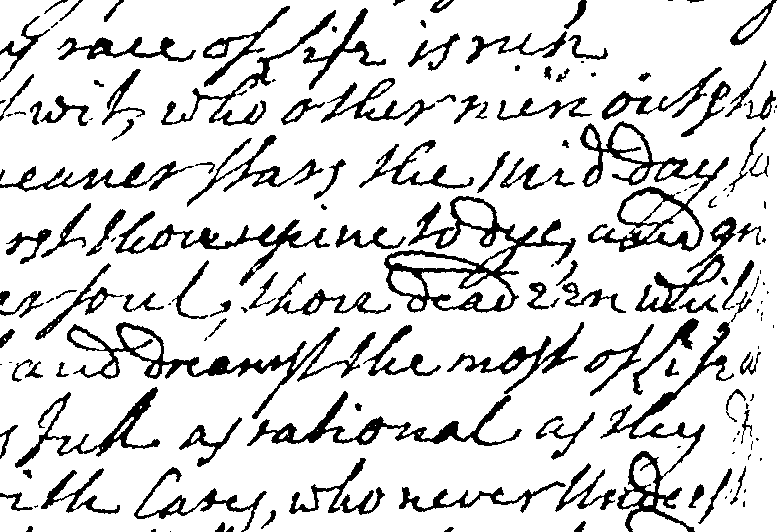 y race of life is run
wit, who other men outsho
eaner stars the mid day su
rst thou repine to dye, and gr
er soul, thou dead e'en whils
and dreamst the most of life a
s full as rational as they
ith Cares, who never underst